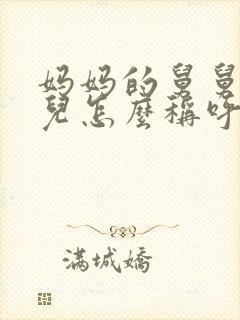 妈妈的舅舅
兒怎麼稱呼
满城嬌